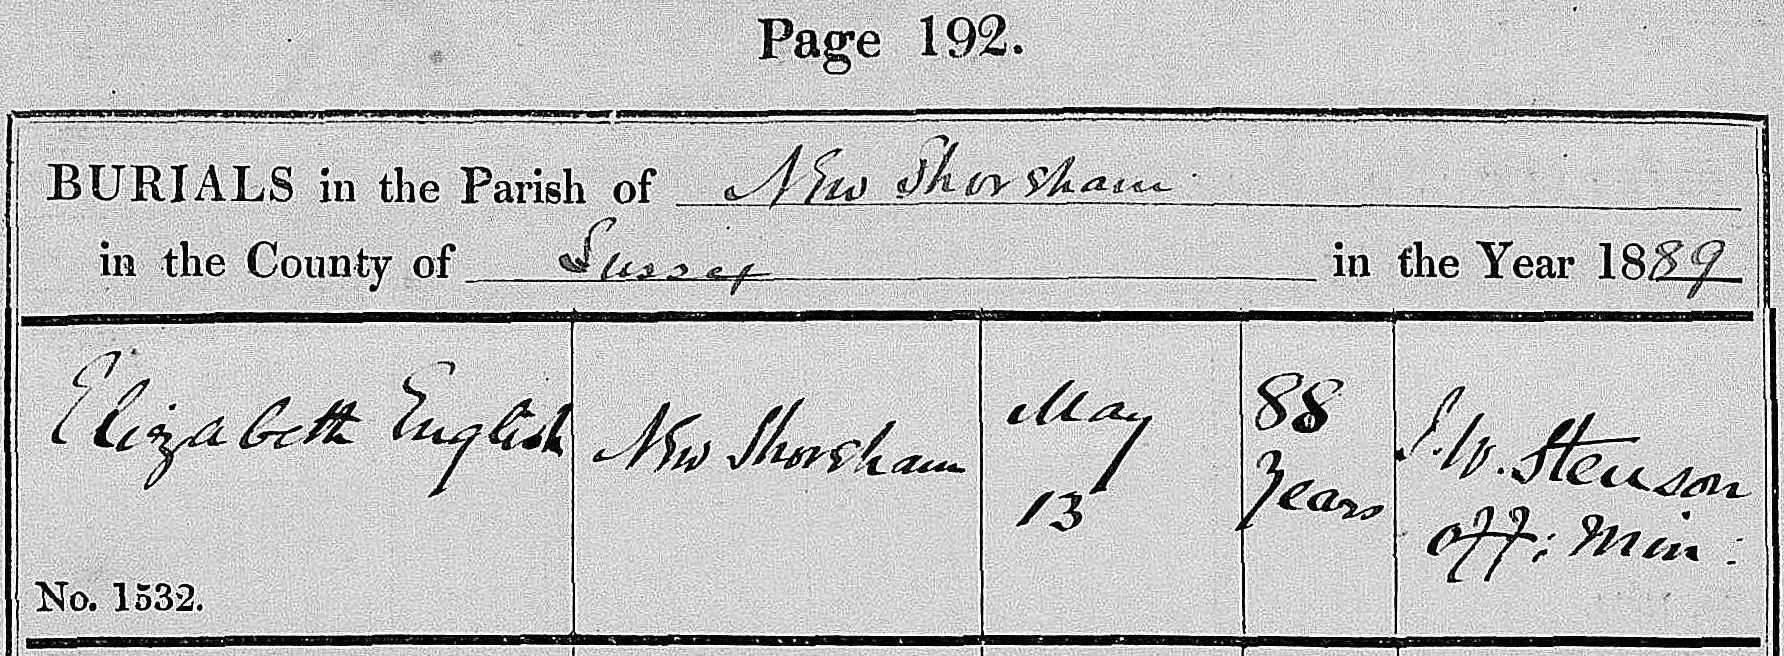 Page 192.
BURIALS in the Parish of New Shoreham
in the County of Sussex in the Year 1889
Elizabeth English New Shoreham May 13 88 Years J. W. Stenson off: Min:
No. 1532.